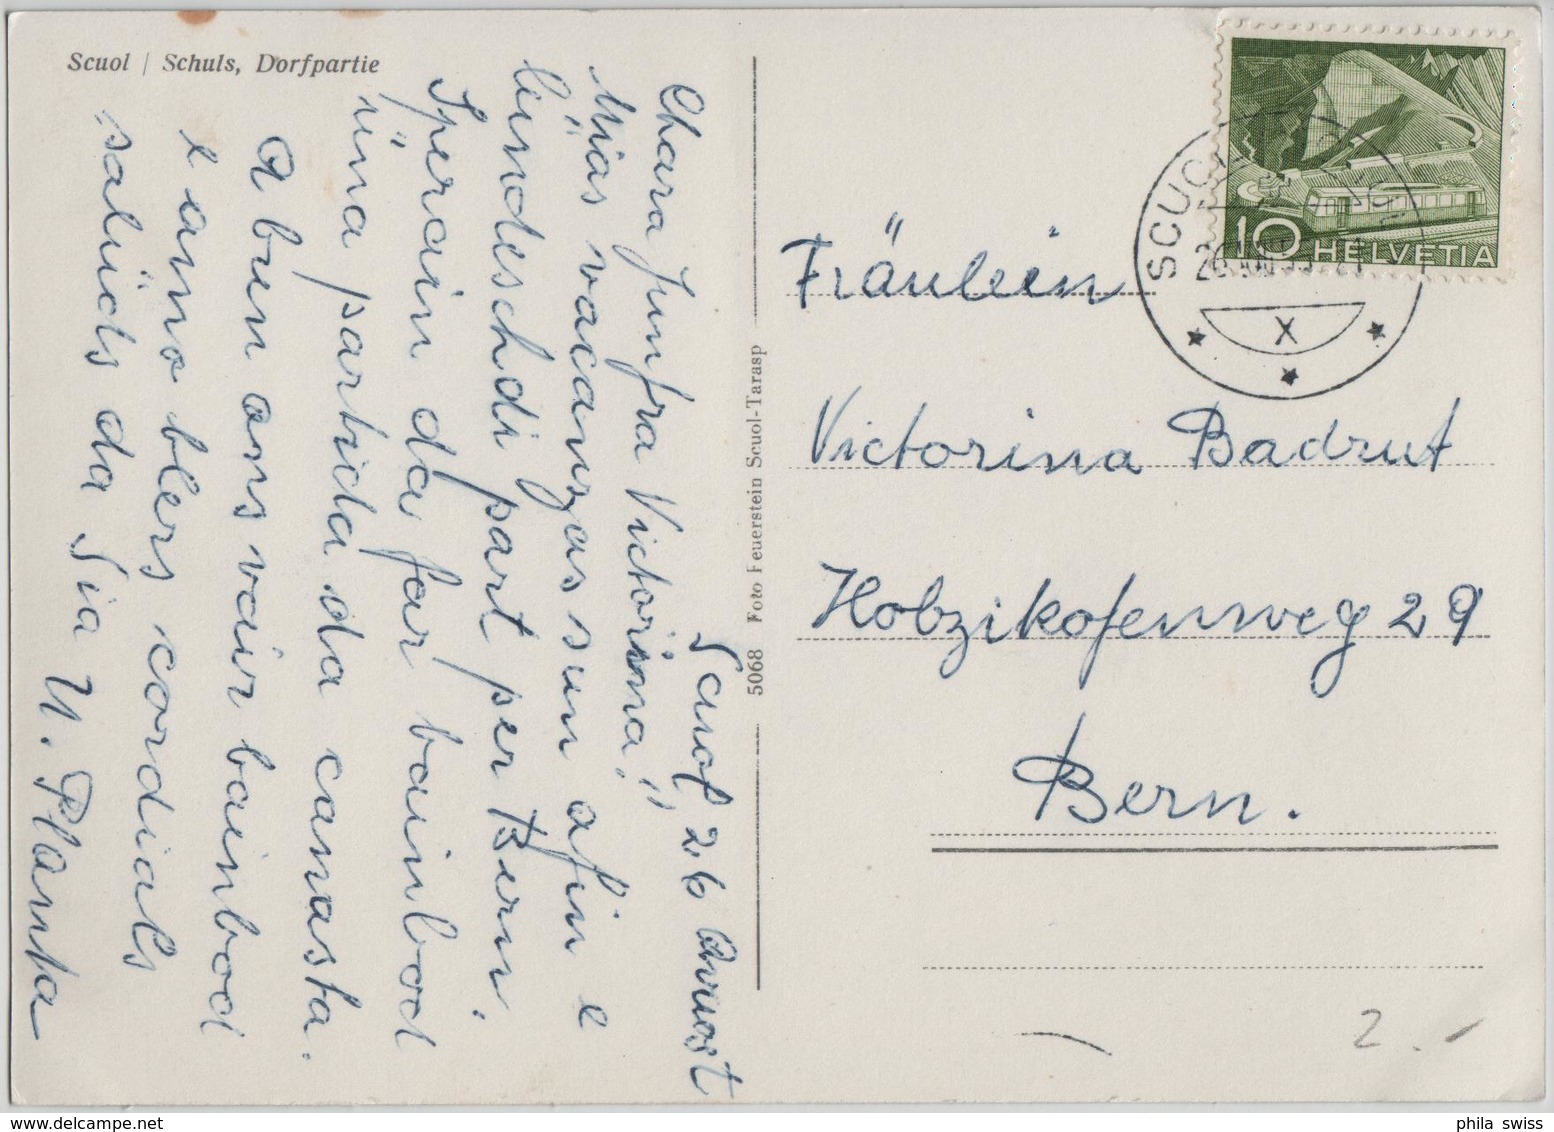 Scuol / Schuls, Dorfpartie
Scuol 26 Avuost
Chara Junfra Victorina!
Mias vacanzas sun a fin e
lündeschdi part per Bern.
Sperain da far bainbod
üna partida da canasta.
A bun ans vair bainbod
e amo blers cordials
salüds da Sia U. Planta
5068 Foto Feuerstein Scuol-Tarasp
10 HELVETIA
SCUOL
X
Fräulein
Victorina Badrut
Hobzikofenweg 29
Bern.
2.-
phila swiss